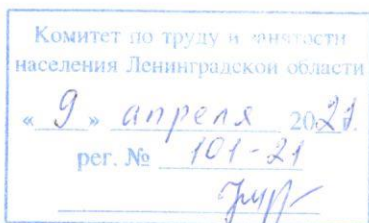 Комитет по труду и занятости
населения Ленинградской области
« 9 » апреля 2021.
рег. № 101-21